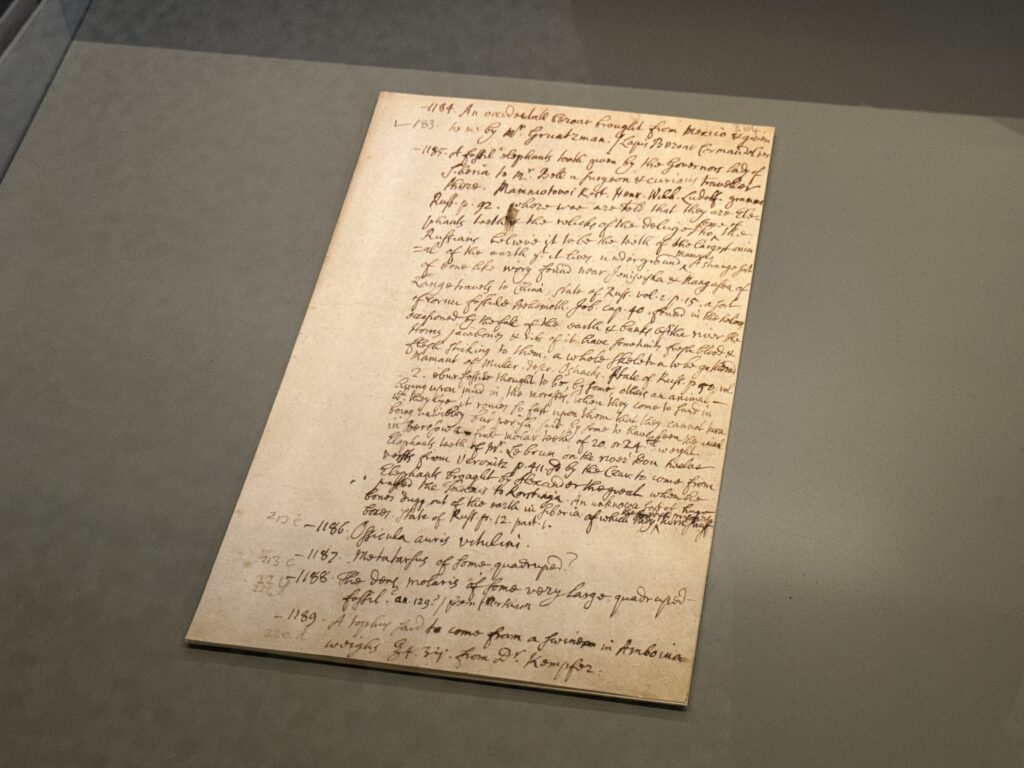 -1184. An occidentall bezoar brought from Mexico & given
183. to me by Mr. Gruntzman. Lapis Bezoar
-1185. A fossil elephants tooth given by the Governors lady of
Siberia to Mr. Bell a surgeon & curious traveller
there. Mammotovoi Kost. Henr. Wilh. Ludolf. gramm.
Russ. p. 92. where we are told that they are Ele-
phants teeth & the relicks of the deluge. the
Russians believe it to be the teeth of the largest anim
=al of the earth yt it lives underground. A strange sort
of bone like ivory found near Jenisoiska & Mangasea of
Lange travels to China. State of Russ. vol. 2. p. 15. a sort
of cornu fossile Behemoth. Job. cap. 40. found in the holes
occasioned by the fall of the earth & banks of the river the
Horns jawbones & ribs of it have sometimes fresh blood &
flesh sticking to them. a whole skeleton to be gathered
Mamant of Muller. Ostiacks. State of Russ. p. 92. vol.
2. ebur fossile thought to be by some others an animal
living upon mud in the morasses when they come to sand in
wch they live it closes so fast upon them that they cannot turn
being unwieldy & perish. said by some to have been seen
in Beresowa. molar teeth of 20 or 24 weight.
Elephants teeth of Mr. Le brun on the river Don
versts from Veronitz p. by the Czar to come from
Elephants brought by Alexander the great when he
passed the Tanais to Kostinga. An unknown sort of huge
bones dugg out of the earth in Siberia of which
boxes. State of Russ p. 12. part. 1.
213 c -1186. Ossicula auris vitulini.
213 c -1187. Metatarsus of some quadruped?
-1188. The dens molaris of some very large quadruped
fossil. an. 129?
-1189. A tophus said to come from a swine in Amboina
weighs from Dr. Kempfer.